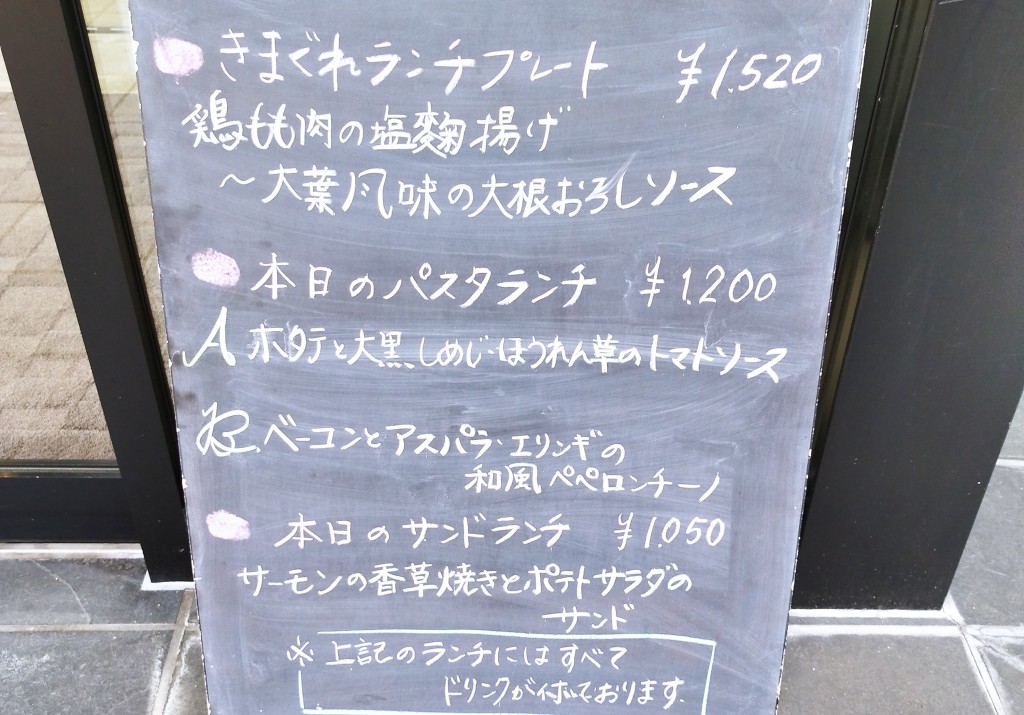 きまぐれランチプレート ¥1.520
鶏もも肉の塩麹揚げ
～大葉風味の大根おろしソース
本日のパスタランチ ¥1.200
A ホタテと大黒しめじ・ほうれん草のトマトソース
B. ベーコンとアスパラ・エリンギの
和風ペペロンチーノ
本日のサンドランチ ¥1.050
サーモンの香草焼きとポテトサラダの
サンド
※上記のランチにはすべて
ドリンクが付いております。